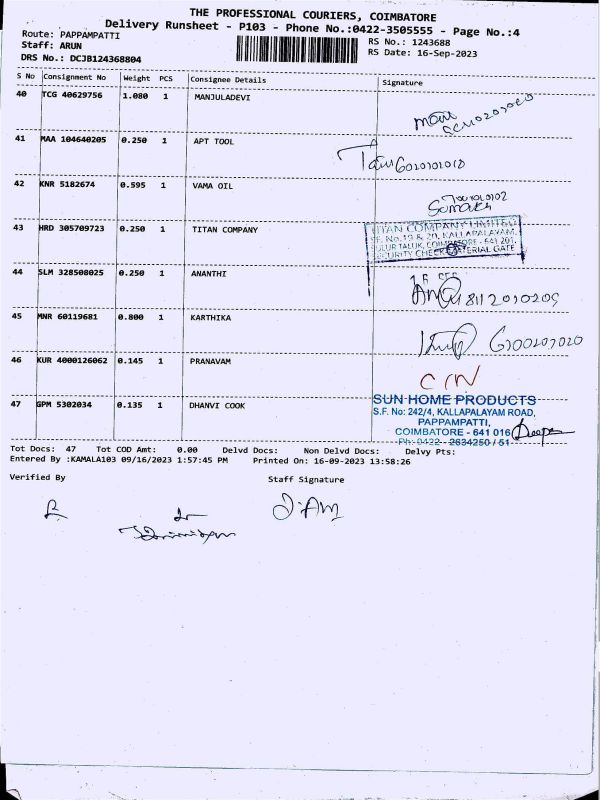 THE PROFESSIONAL COURIERS, COIMBATORE
Delivery Runsheet - P103 - Phone No.:0422-3505555 - Page No.:4
Route: PAPPAMPATTI
Staff: ARUN
RS No.: 1243688
DRS No.: DCJB124368804
RS Date: 16-Sep-2023
S No Consignment No Weight PCS Consignee Details Signature
40 TCG 40629756 1.080 1 MANJULADEVI
41 MAA 104640205 0.250 1 APT TOOL
42 KNR 5182674 0.595 1 VAMA OIL
43 HRD 305709723 0.250 1 TITAN COMPANY
TITAN COMPANY LIMITED
S.F. No.19 & 20, KALLAPALAYAM,
SULUR TALUK, COIMBATORE - 641 201.
SECURITY CHECK MATERIAL GATE
44 SLM 328508025 0.250 1 ANANTHI
45 MNR 60119681 0.800 1 KARTHIKA
46 KUR 4000126062 0.145 1 PRANAVAM
C/N
47 GPM 5302034 0.135 1 DHANVI COOK
SUN HOME PRODUCTS
S.F. No: 242/4, KALLAPALAYAM ROAD,
PAPPAMPATTI,
COIMBATORE - 641 016
Ph: 0422 - 2634250 / 51
Tot Docs: 47 Tot COD Amt: 0.00 Delvd Docs: Non Delvd Docs: Delvy Pts:
Entered By :KAMALA103 09/16/2023 1:57:45 PM Printed On: 16-09-2023 13:58:26
Verified By Staff Signature